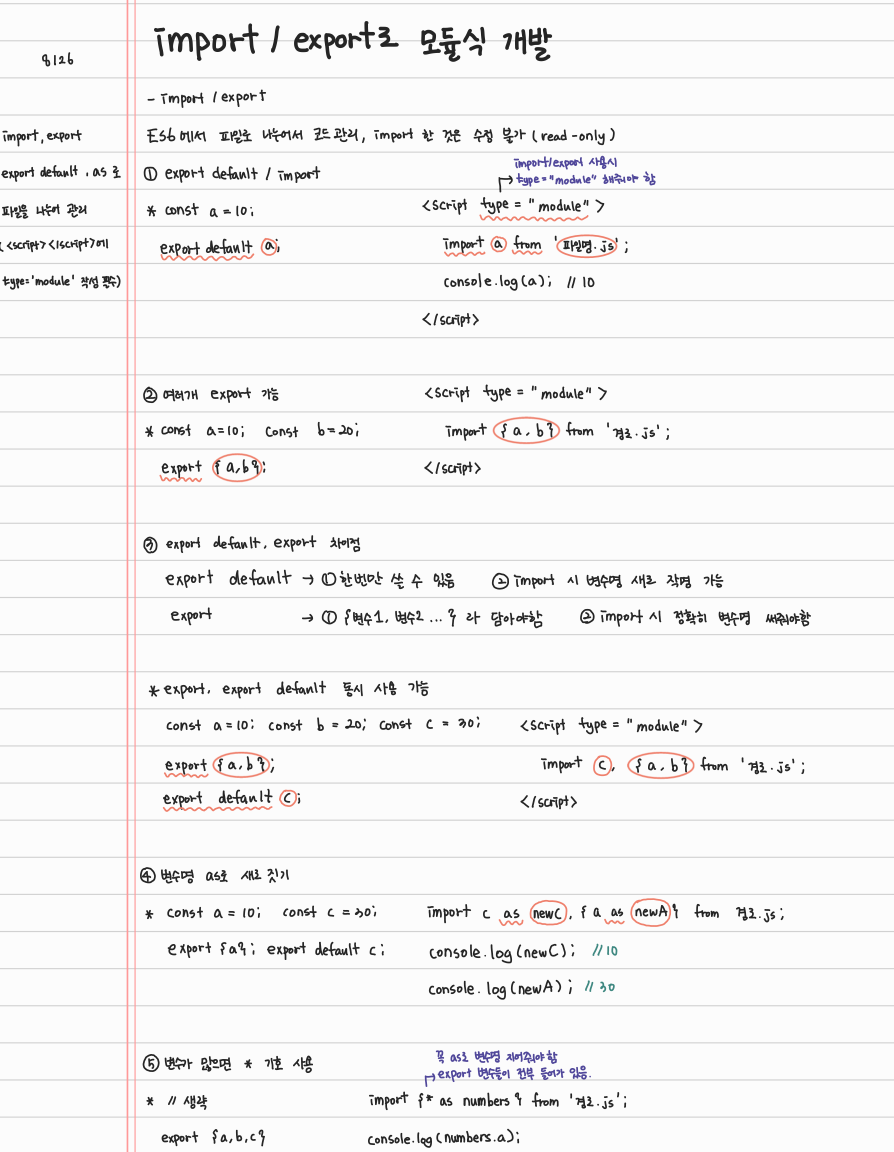 import / export로 모듈식 개발
8/26
import, export
export default, as 로
파일을 나누어 관리
( <script></script>에
type='module' 작성 필수)
- import / export
ES6 에서 파일로 나누어서 코드 관리, import 한 것은 수정 불가 ( read-only )
① export default / import
import/export 사용시
type="module" 해줘야 함
* const a = 10;
<script type = "module" >
export default a;
import a from '파일명.js' ;
console.log(a); // 10
</script>
② 여러개 export 가능
<script type = "module" >
* const a=10; const b=20;
import { a, b } from '경로.js' ;
export { a,b };
</script>
③ export default, export 차이점
export default → ① 한번만 쓸 수 있음 ② import 시 변수명 새로 작명 가능
export → ① {변수1, 변수2 ... } 라 담아야함 ② import 시 정확히 변수명 써줘야함
* export, export default 동시 사용 가능
const a = 10; const b = 20; const c = 30;
<script type = "module" >
export { a, b };
import c, { a, b } from '경로.js' ;
export default c;
</script>
④ 변수명 as로 새로 짓기
* const a = 10; const c = 30;
import c as newC, { a as newA } from 경로.js ;
export {a}; export default c;
console.log(newC); //10
console.log(newA); // 30
⑤ 변수가 많으면 * 기호 사용
꼭 as로 변수명 지어줘야함
export 변수들이 전부 들어가 있음.
* // 생략
import {* as numbers } from '경로.js' ;
export {a,b,c}
console.log(numbers.a);